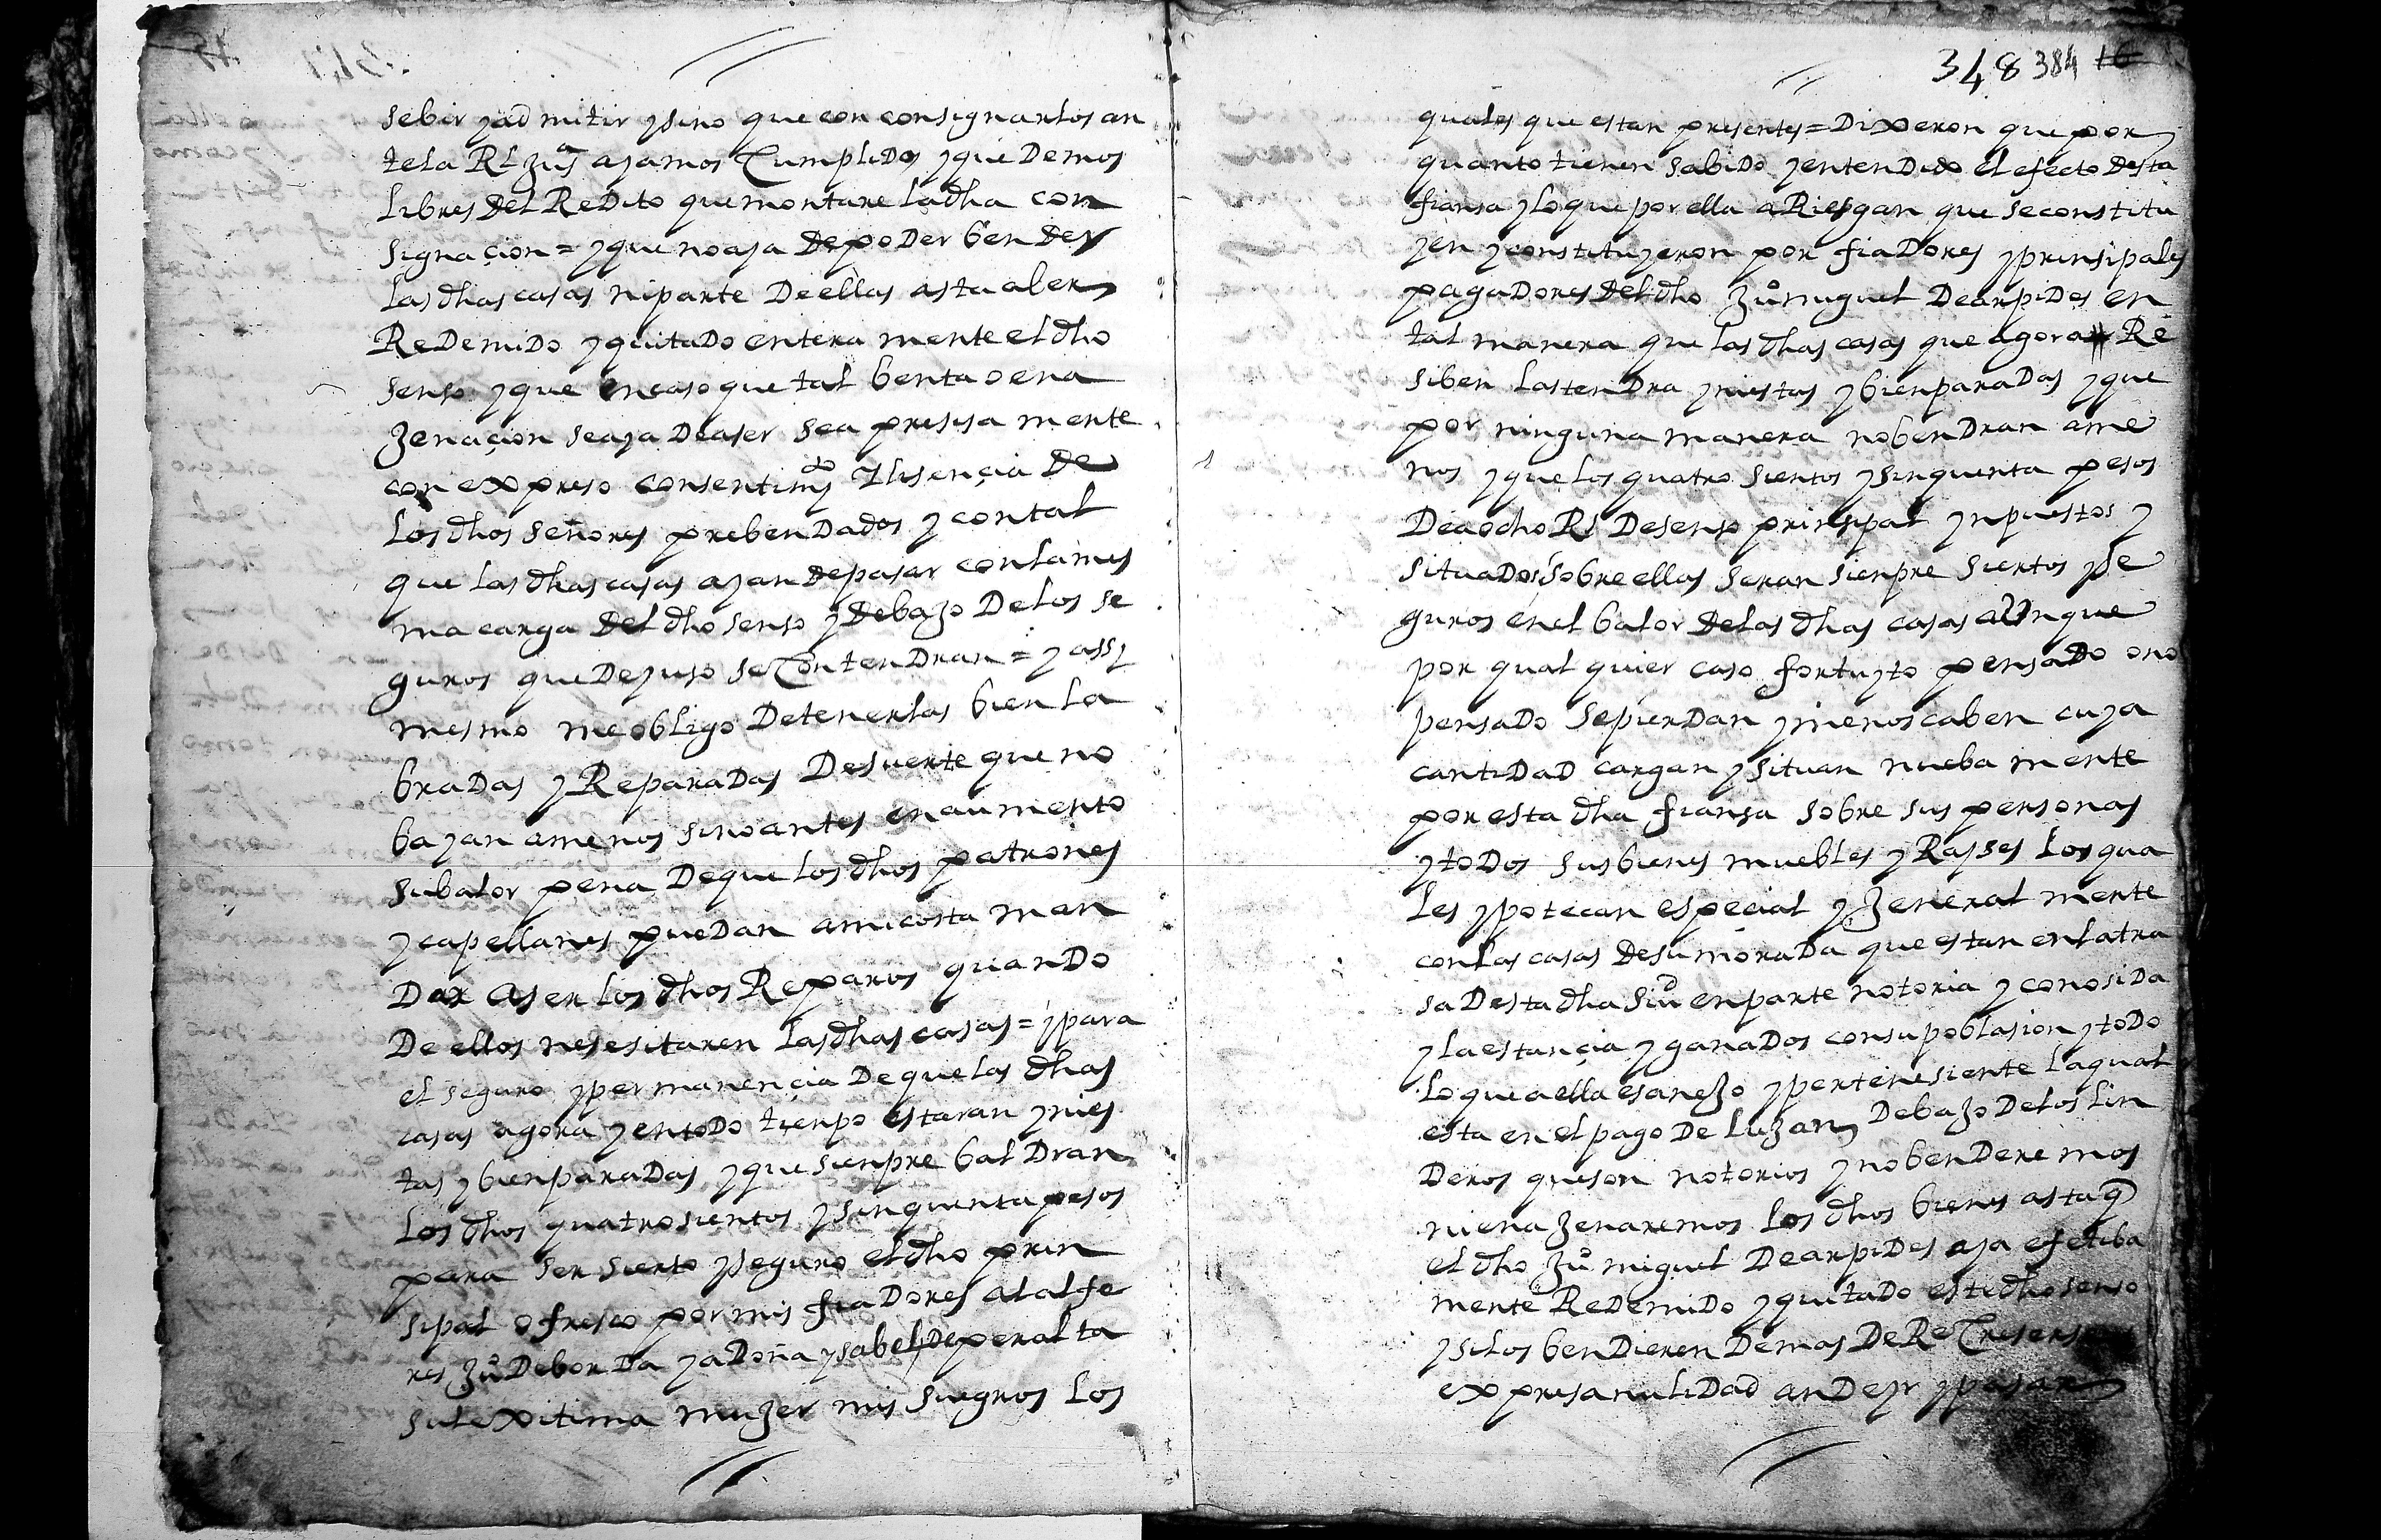 sebir y ad mitir y sino que con consignarlos an
te la Rl Jus.a ayamos Cumplido y que Demos
libres Del ReDito que montare la dha con
signaçion = y que no aya De poDer benDer
las dhas casas ni parte De ellas asta aber
ReDemiDo y quitaDo entera mente el dho
senso y que en caso que tal benta o ena
Jenaçion se aya De aser sea presisa mente
con expreso consentim.do Y lisençia De
los dhos señores prebenDados y con tal
que las dhas casas ayan De pasar con la mis
ma carga Del dho senso y Debajo De los se
guros que De yuso se ContenDran = y assy
mesmo me obligo De tenerlas bien la
braDas y ReparaDas De suerte que no
bayan a menos sino antes en aumento
su balor pena De que los dhos patrones
y capellanes pueDan a mi costa man
Dar aser los dhos Reparos quanDo
De ellos nesesitaren las dhas casas = y para
el seguro y permanençia De que las dhas
casas agora y en toDo tienpo estaran ynies
tas y bien paraDas y que sienpre balDran
los dhos quatrosientos y sinquenta pesos
para ser sierto y seguro el dho prin
sipal ofresco por mis fiaDores al alfe
res Ju.o De borDa y a Doña ysabel De peralta
su lexitima mujer mis suegros los
348 384 16
quales que estan presentes = Dixeron que por
quanto tienen sabiDo y entenDido el efecto Desta
fiansa y lo que por ella aRiesgan que se constitu
yen y constituyeron por fiaDores y prinsipales
pagaDores Del dho Ju.o miguel De arpiDes en
tal manera que las dhas casas que agora Re
siben las tenDra yniestas y bien paraDas y que
por ninguna manera no benDran a me
nos y que los quatro sientos y sinquenta pesos
De a ocho Rs De senso prinsipal ynpuestos y
situaDos sobre ellas seran sienpre siertos y se
guros en el balor De las dhas casas aunque
por qual quier caso fortuyto pensaDo o no
pensaDo se pierDan y menoscaben cuya
cantiDaD cargan y situan nueba mente
por esta dha fiansa sobre sus personas
y toDos sus bienes muebles y Raysses los qua
les ypotecan espeçial y Jeneral mente
con las casas De su moraDa que estan en la tra
sa Desta dha siu.d en parte notoria y conosiDa
y la estançia y ganaDos con su poblasion y toDo
lo que a ella es anejo y pertenesiente la qual
esta en el pago De lujan Debajo De los lin
Deros que son notorios y no benDeremos
ni enaJenaremos los dhos bienes asta q
el dho Ju.o miguel De arpiDes aya efetiba
mente ReDemiDo y quitaDo este dho senso
y si los benDieren Demas De
expresa nuliDad an De yr y pasar